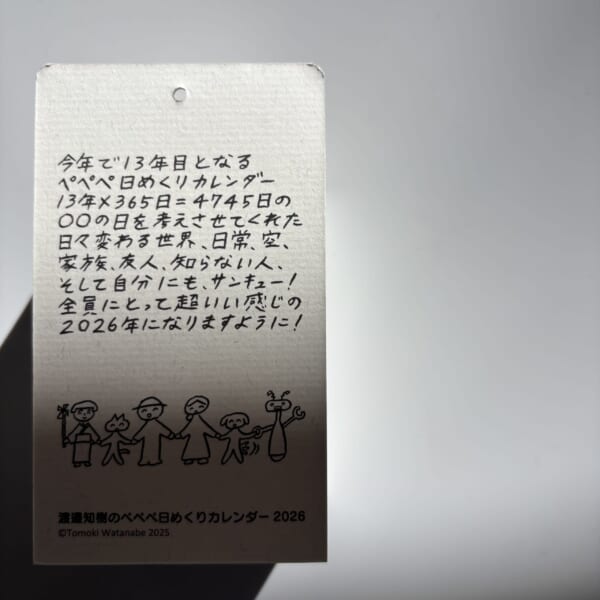 今年で13年目となる
ペペペ日めくりカレンダー
13年×365日=4745日の
〇〇の日を考えさせてくれた
日々変わる世界、日常、空、
家族、友人、知らない人、
そして自分にも、サンキュー!
全員にとって超いい感じの
2026年になりますように!
渡邉知樹のペペペ日めくりカレンダー 2026
©Tomoki Watanabe 2025